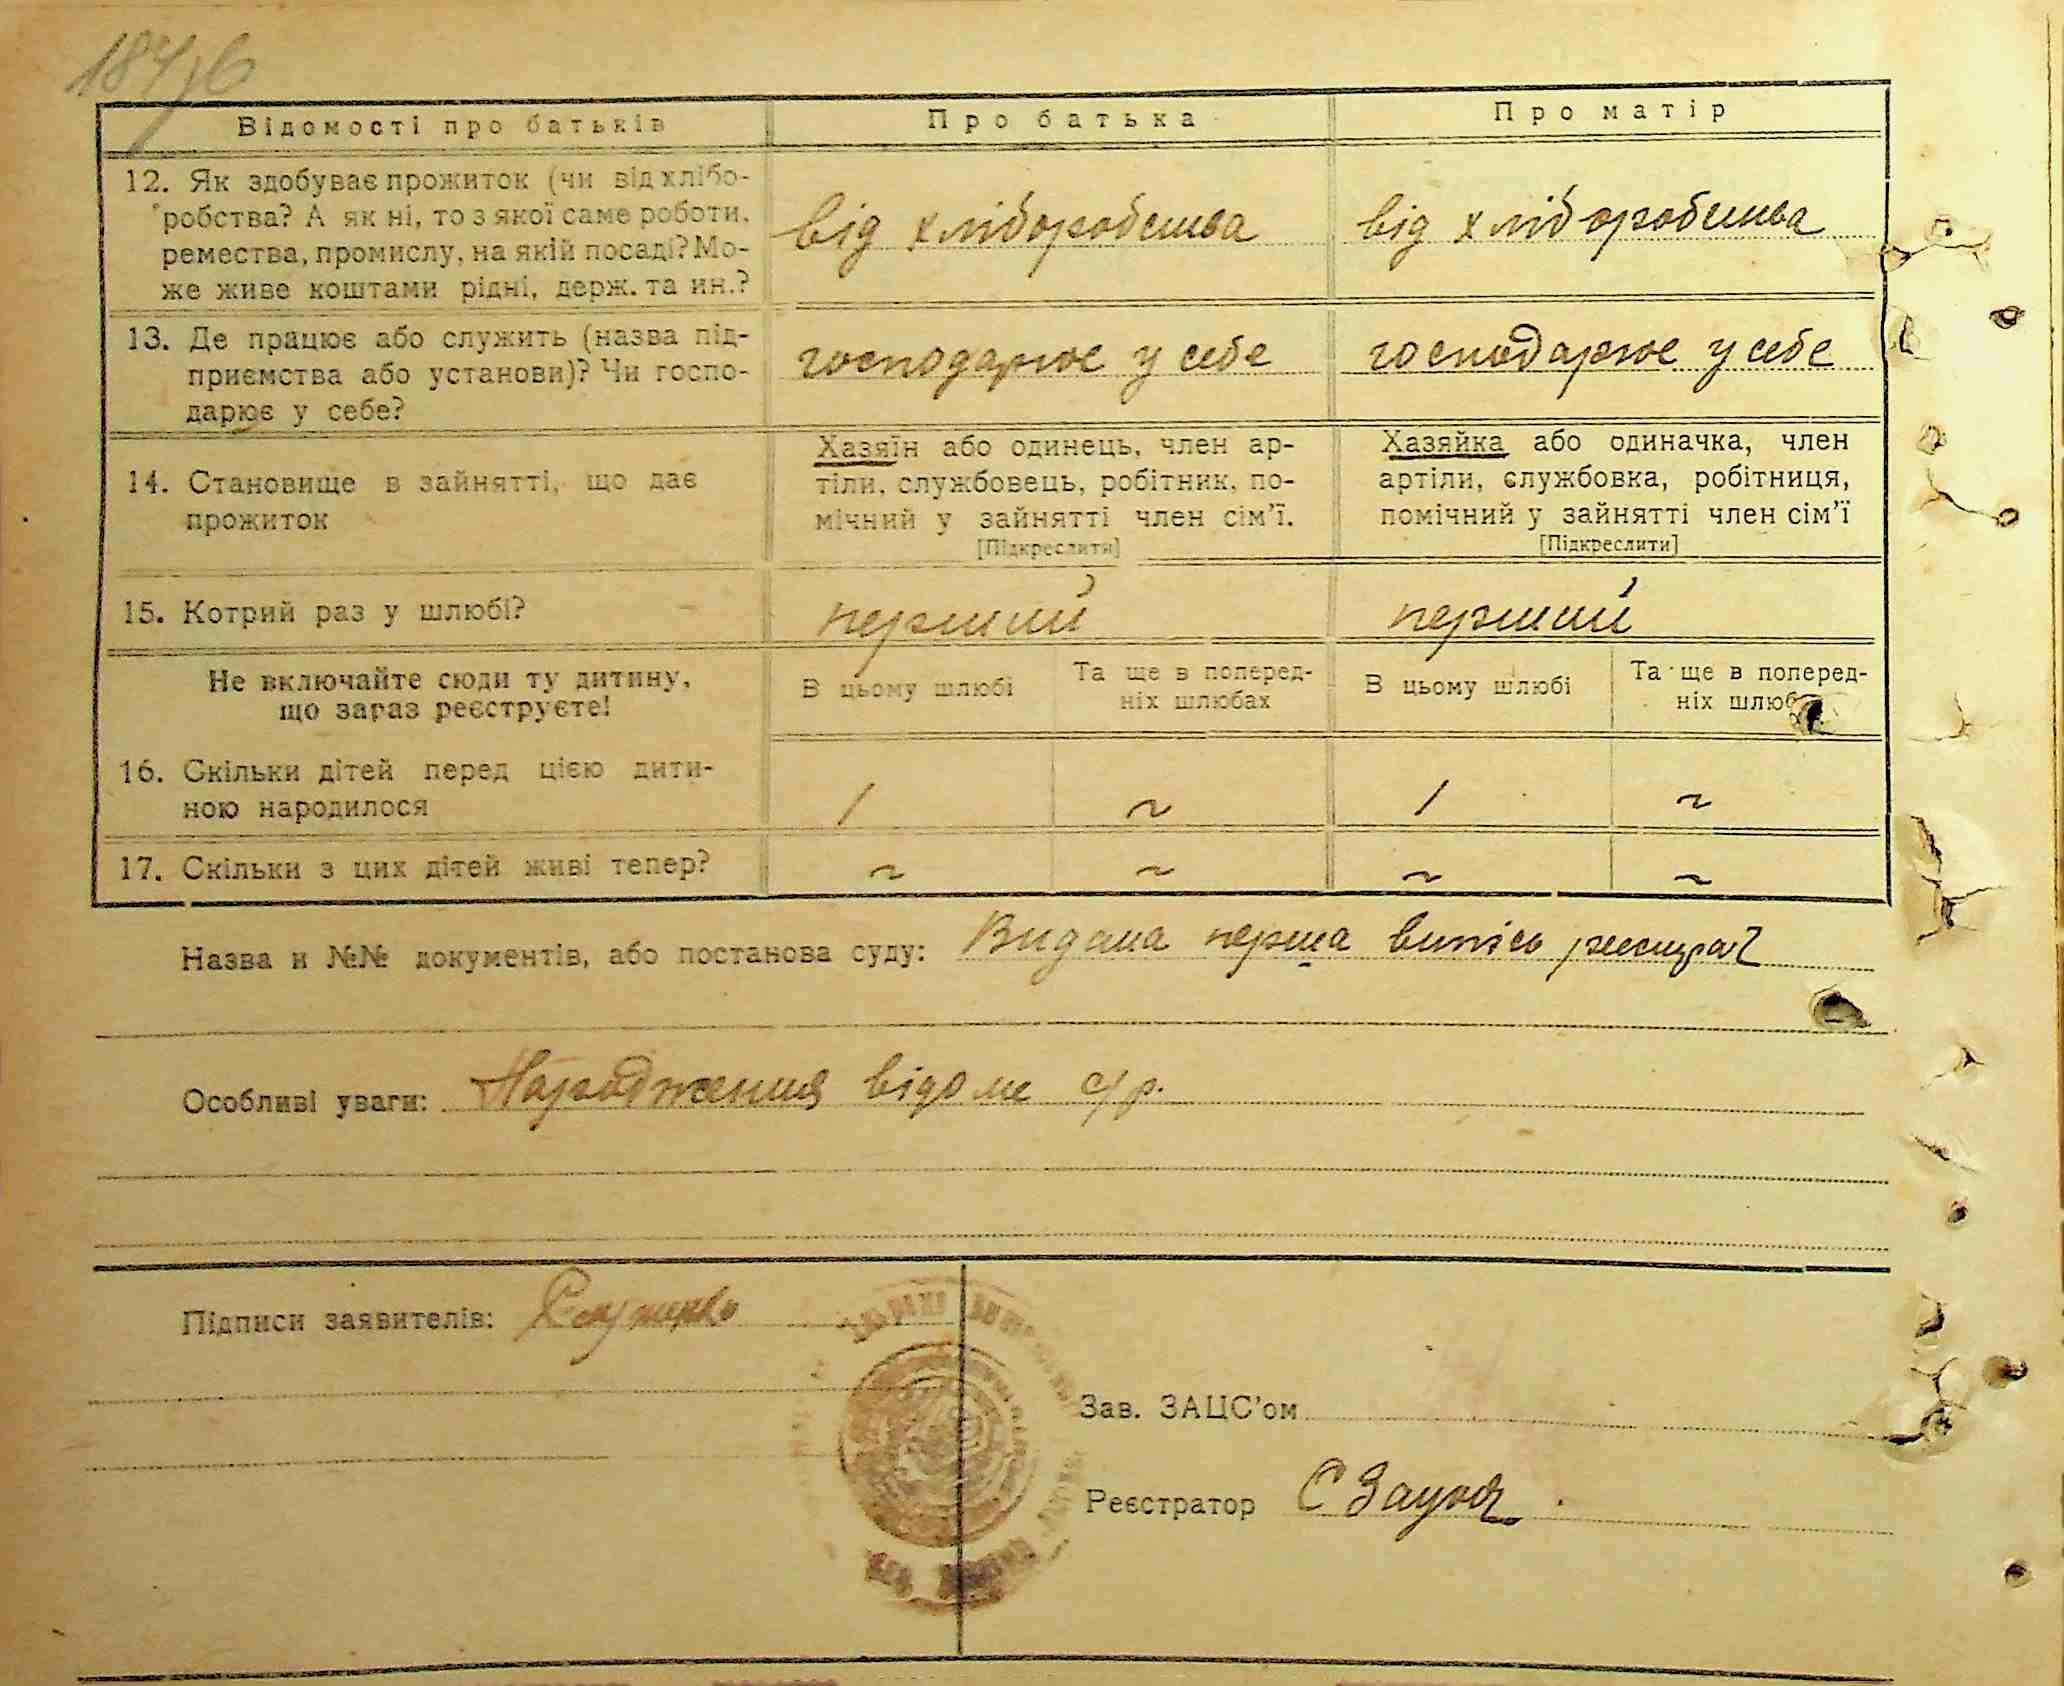 Відомості про батьків
Про батька
Про матір
12. Як здобуває прожиток (чи від хлібо-
робства? А як ні, то з якої саме роботи,
ремества, промислу, на якій посаді? Мо-
же живе коштами рідні, держ. та ин.?
від хліборобства
від хліборобства
13. Де працює або служить (назва під-
приємства або установи)? Чи госпо-
дарює у себе?
господарює у себе
господарює у себе
14. Становище в зайнятті, що дає
прожиток
Хазяїн або одинець, член ар-
тіли, службовець, робітник, по-
мічний у зайнятті член сім'ї.
[Підкреслити]
Хазяйка або одиначка, член
артіли, службовка, робітниця,
помічний у зайнятті член сім'ї
[Підкреслити]
15. Котрий раз у шлюбі?
перший
перший
Не включайте сюди ту дитину,
що зараз реєструєте!
В цьому шлюбі
Та ще в поперед-
ніх шлюбах
В цьому шлюбі
Та ще в поперед-
ніх
16. Скільки дітей перед цією дити-
ною народилося
1
~
1
~
17. Скільки з цих дітей живі тепер?
~
~
~
~
Назва и №№ документів, або постанова суду: Видана перша випісь
Особливі уваги: Народження відоме с/р.
Підписи заявителів:
Зав. ЗАЦС'ом
Реєстратор